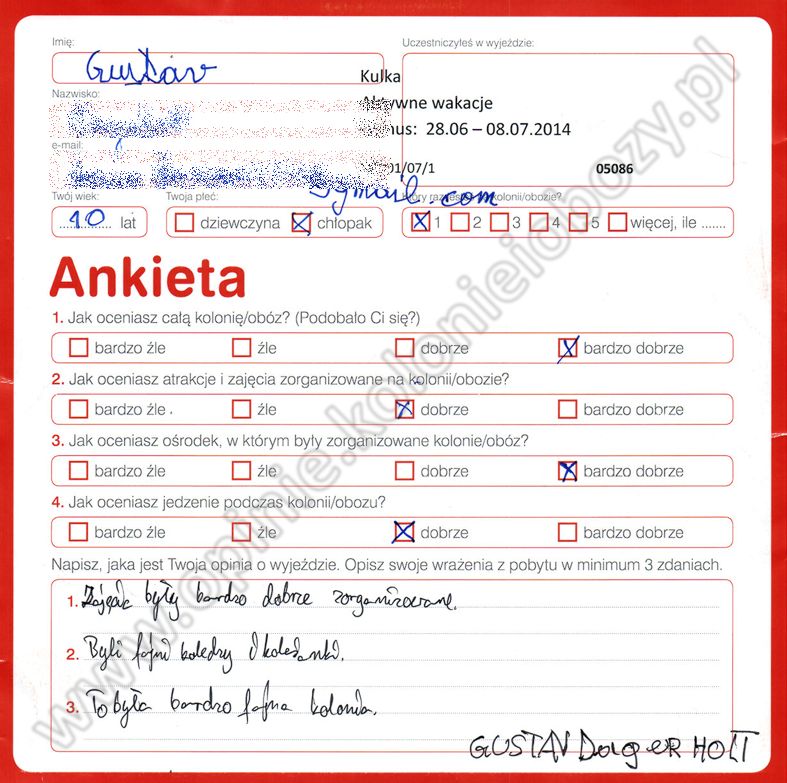 Imię:
Uczestniczyłeś w wyjeździe:
Gustav
Kulka
Nazwisko:
Aktywne wakacje
28.06 – 08.07.2014
e-mail:
01/07/1 05086
gmail.com
Twój wiek: Twoja płeć: kolonii/obozie?
10 lat dziewczyna chłopak 1 2 3 4 5 więcej, ile .......
Ankieta
1. Jak oceniasz całą kolonię/obóz? (Podobało Ci się?)
bardzo źle źle dobrze bardzo dobrze
2. Jak oceniasz atrakcje i zajęcia zorganizowane na kolonii/obozie?
bardzo źle źle dobrze bardzo dobrze
3. Jak oceniasz ośrodek, w którym były zorganizowane kolonie/obóz?
bardzo źle źle dobrze bardzo dobrze
4. Jak oceniasz jedzenie podczas kolonii/obozu?
bardzo źle źle dobrze bardzo dobrze
Napisz, jaka jest Twoja opinia o wyjeździe. Opisz swoje wrażenia z pobytu w minimum 3 zdaniach.
1. Zajęcia były bardzo dobrze zorganizowane.
2. Byli fajni koledzy i koleżanki.
3. To była bardzo fajna kolonia.
GUSTAV DagerHOLT
www.opinie.kolonieiobozy.pl